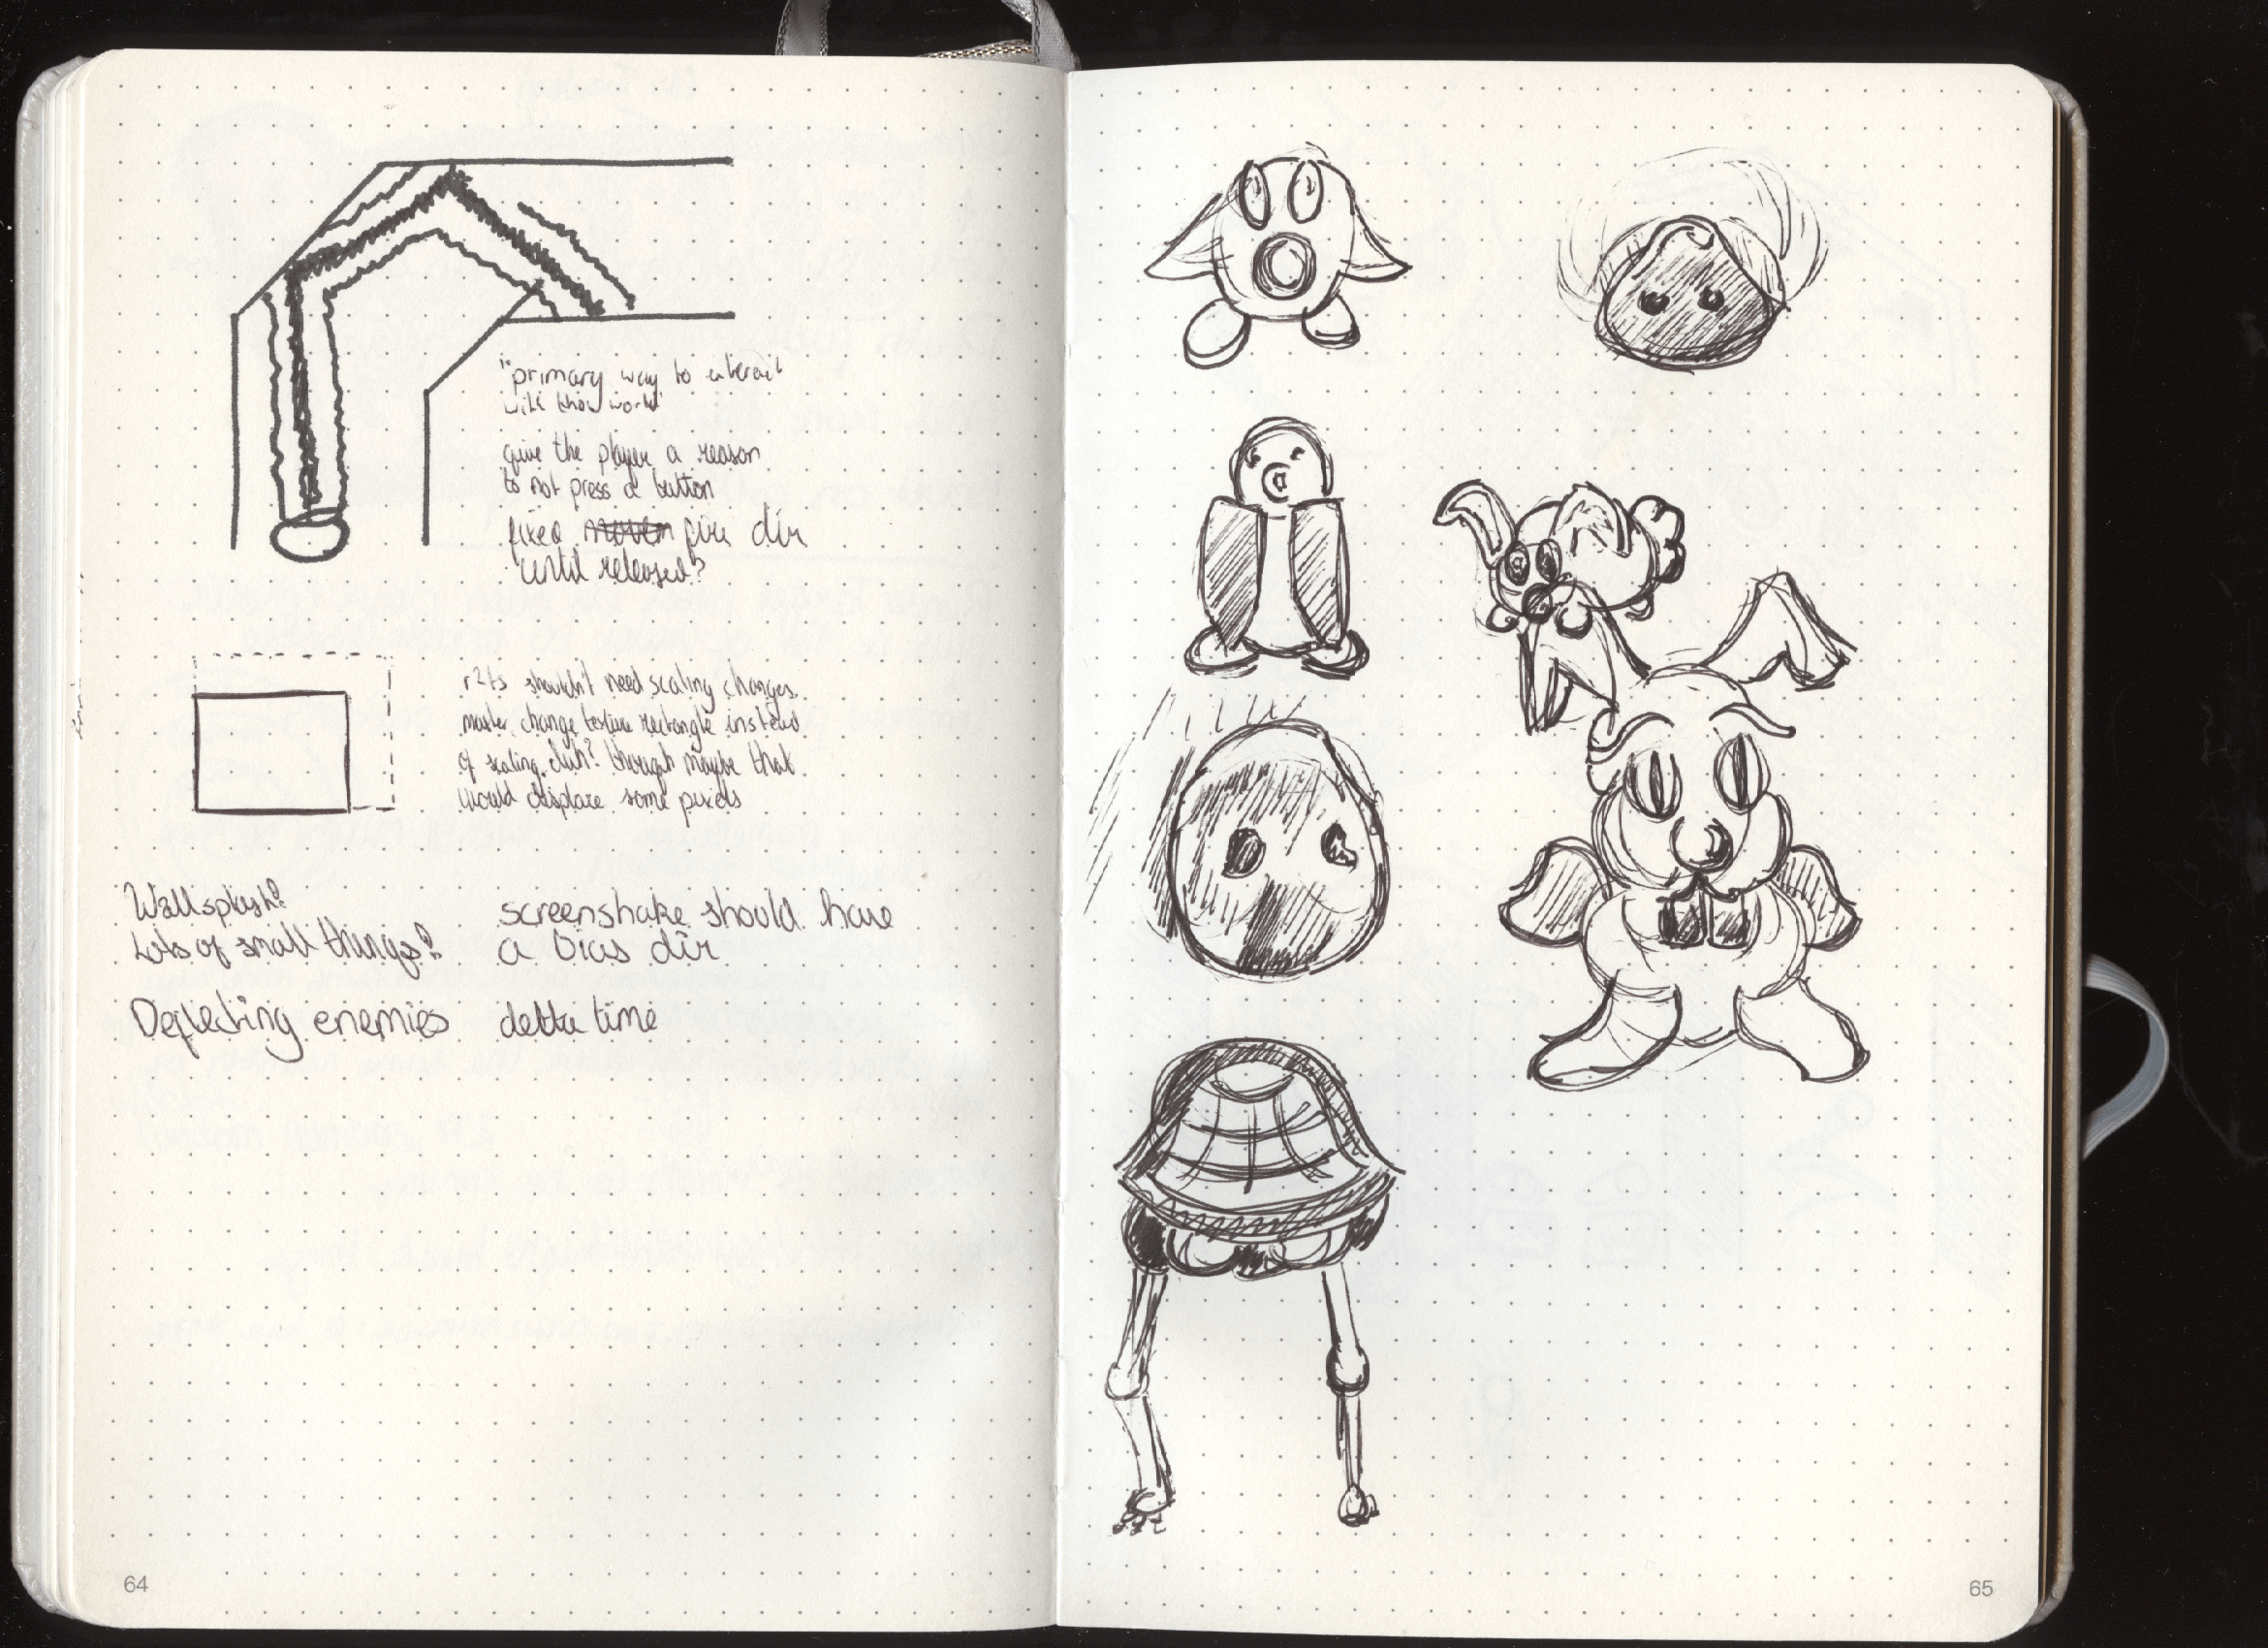 "primary way to interact
with this world"
give the player a reason
to not press a button
fixed fire dir
until released?
r2ts shouldn't need scaling changes
change texture rectangle instead
of scaling, duh? though maybe that
would displace some pixels
Wall splash?
Lots of small things?
screenshake should have
a bias dir
Deflecting enemies
delta time
64
65